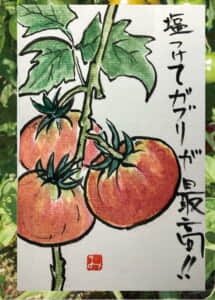 塩つけてガブリが最高!!